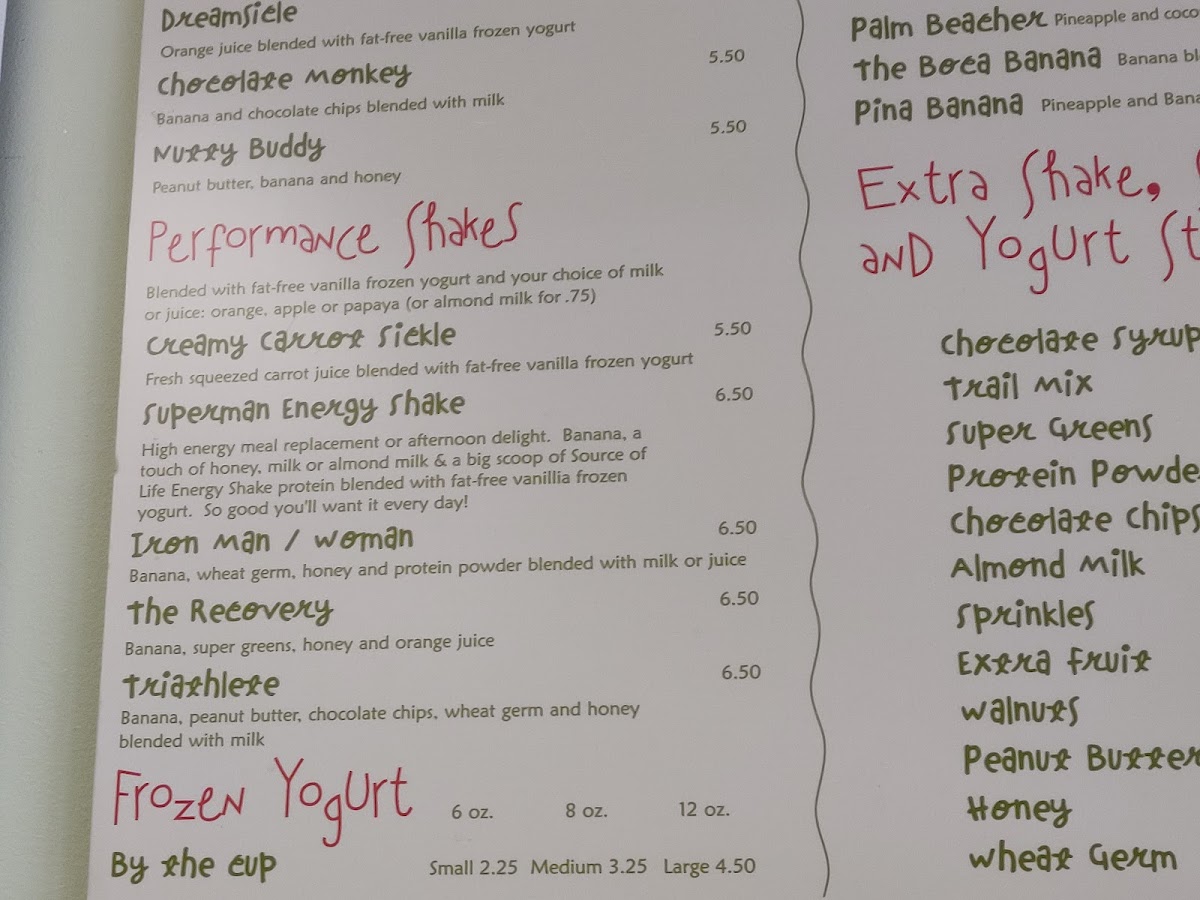 Dreamsicle
Orange juice blended with fat-free vanilla frozen yogurt
Chocolate Monkey 5.50
Banana and chocolate chips blended with milk
Nutty Buddy 5.50
Peanut butter, banana and honey
Performance Shakes
Blended with fat-free vanilla frozen yogurt and your choice of milk
or juice: orange, apple or papaya (or almond milk for .75)
Creamy Carrot Sickle 5.50
Fresh squeezed carrot juice blended with fat-free vanilla frozen yogurt
Superman Energy Shake 6.50
High energy meal replacement or afternoon delight. Banana, a
touch of honey, milk or almond milk & a big scoop of Source of
Life Energy Shake protein blended with fat-free vanillia frozen
yogurt. So good you'll want it every day!
Iron Man / Woman 6.50
Banana, wheat germ, honey and protein powder blended with milk or juice
The Recovery 6.50
Banana, super greens, honey and orange juice
Triathlete 6.50
Banana, peanut butter, chocolate chips, wheat germ and honey
blended with milk
Frozen Yogurt 6 oz. 8 oz. 12 oz.
By the cup Small 2.25 Medium 3.25 Large 4.50
Palm Beacher Pineapple and
The Boca Banana Banana
Pina Banana Pineapple and
Extra Shake,
and Yogurt
Chocolate Syrup
Trail Mix
Super Greens
Protein
Chocolate Chips
Almond Milk
Sprinkles
Extra Fruit
Walnuts
Peanut Butter
Honey
Wheat Germ